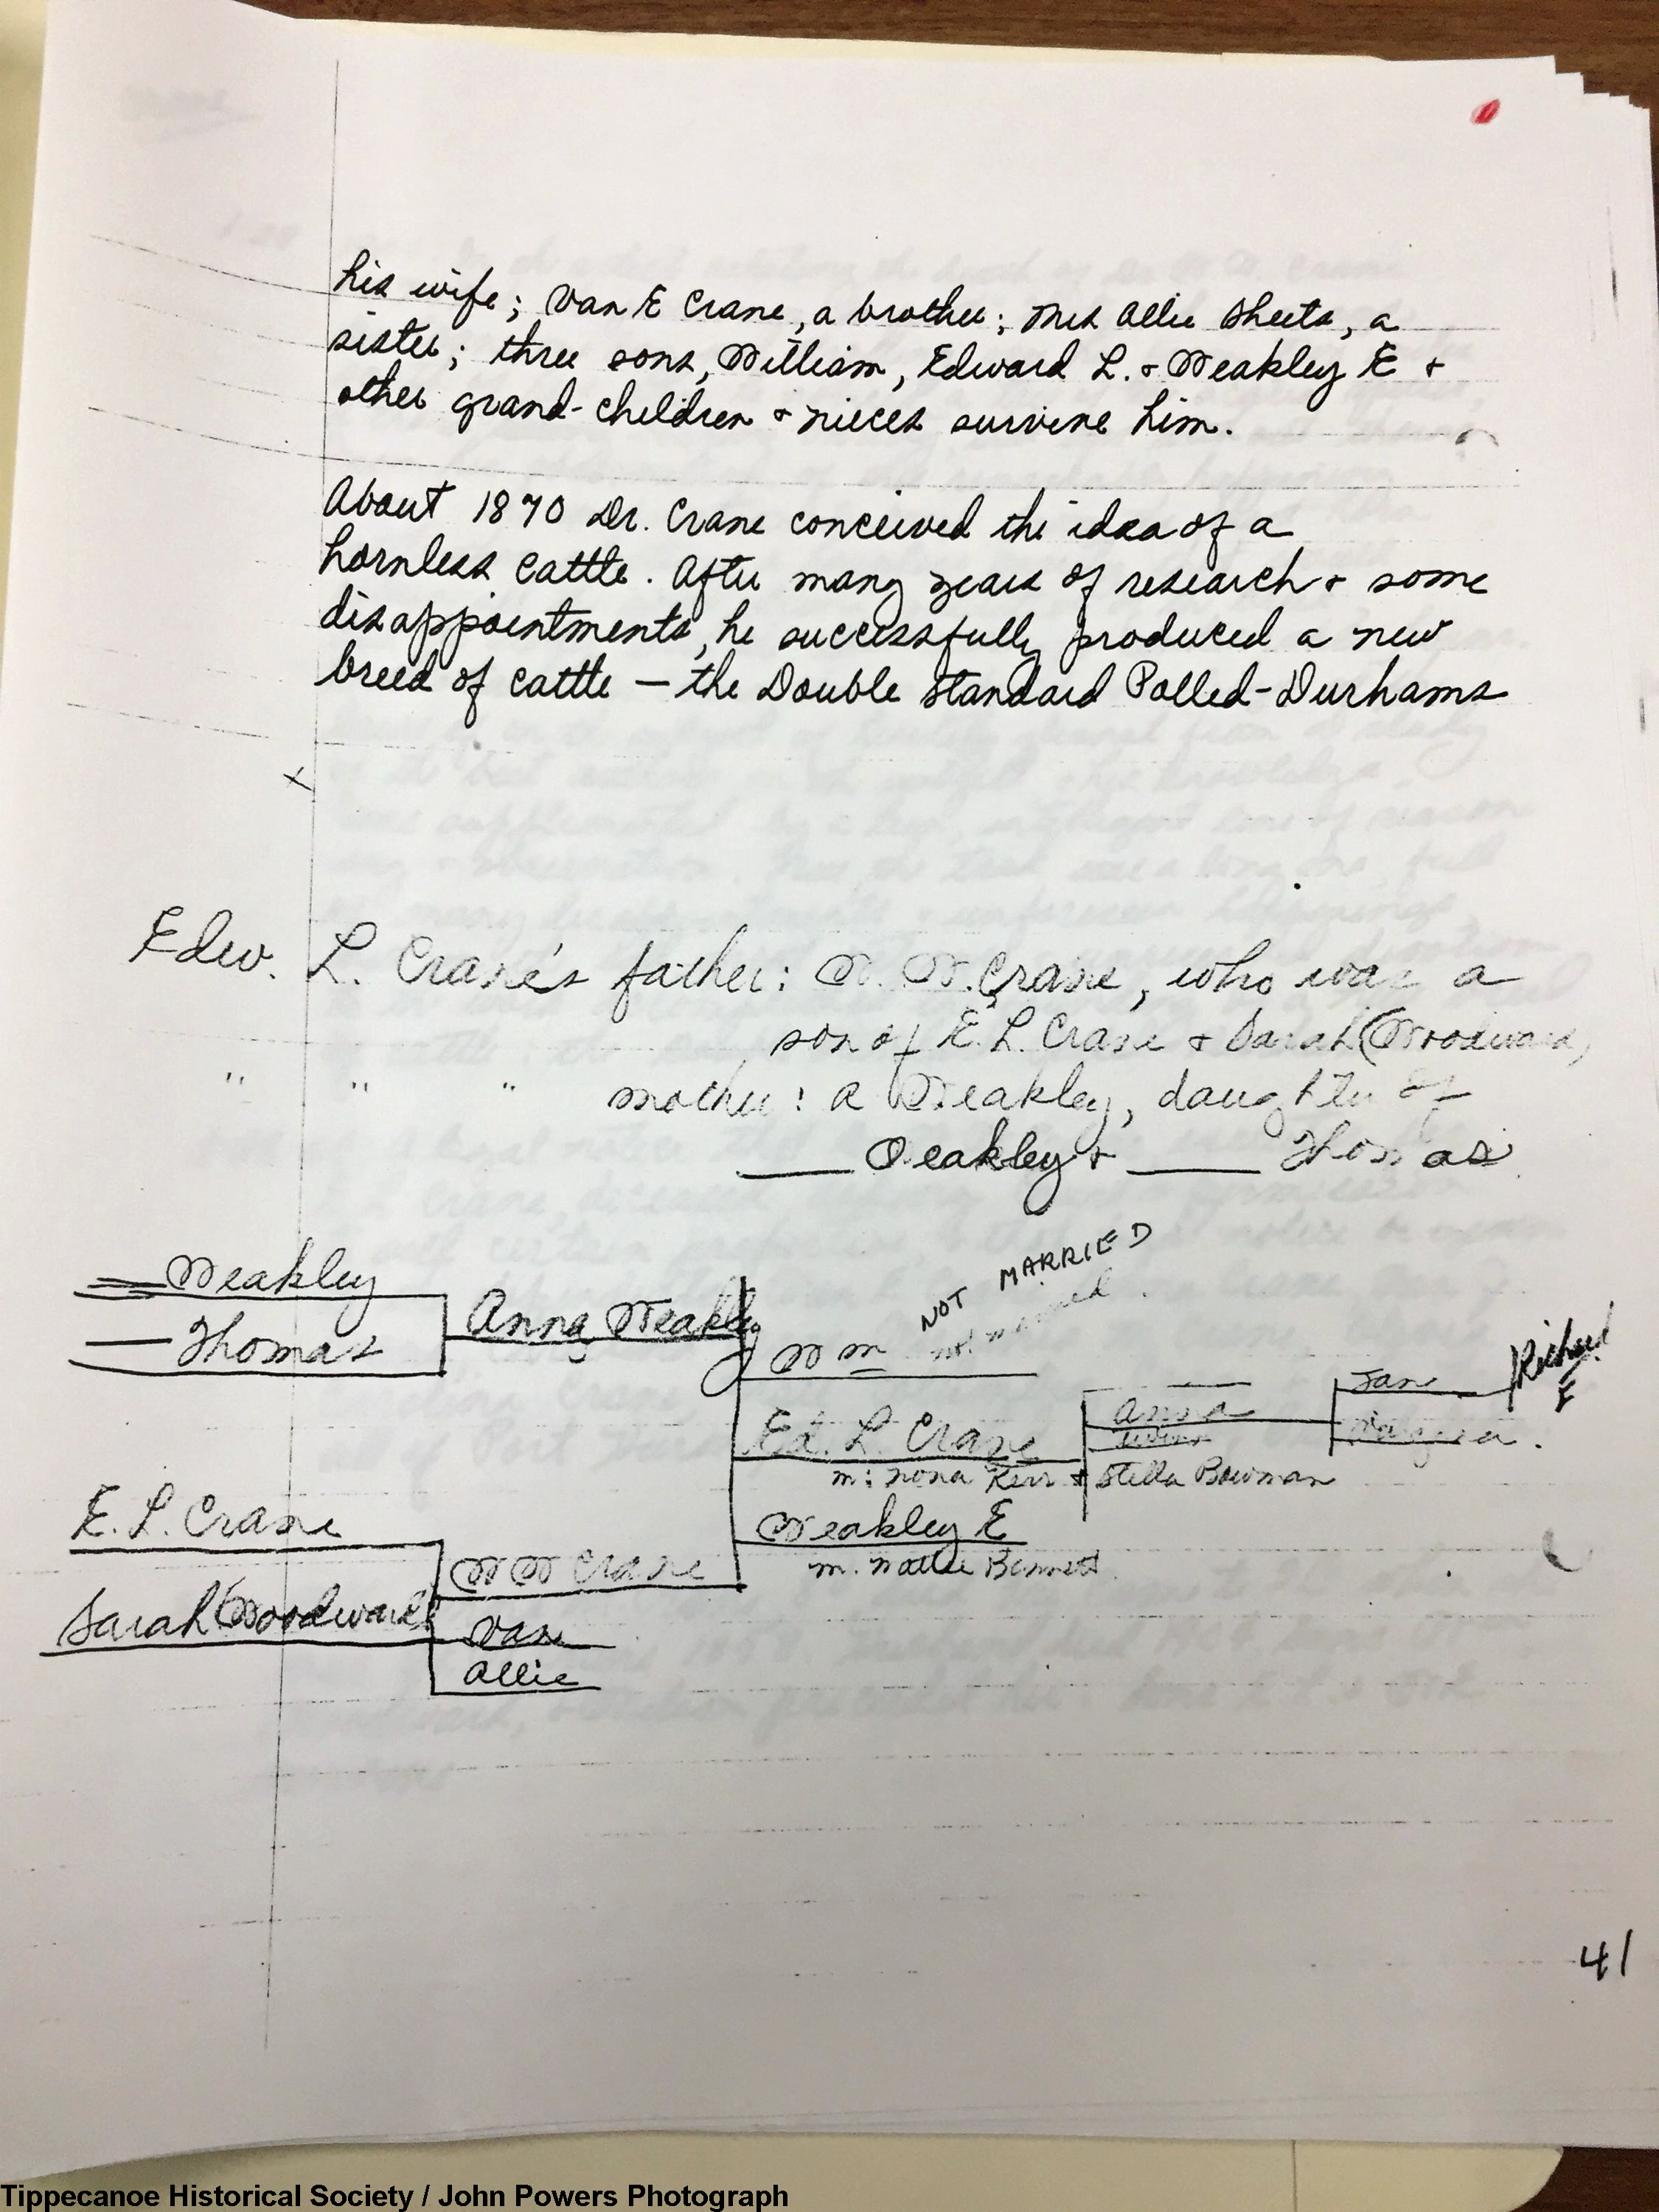 his wife; Van E Crane, a brother; Mrs Allie Sheets, a
sister; three sons, William, Edward L. + Weakley E +
other grand-children + nieces survive him.
About 1870 Dr. Crane conceived the idea of a
hornless cattle. After many years of research + some
disappointments, he successfully produced a new
breed of cattle — the Double Standard Polled-Durhams
x
Edw. L. Crane's father: W. W. Crane, who was a
son of E. L. Crane + Sarah (Woodward)
" " " mother: a Weakley, daughter of
____ Weakley + ____ Thomas
NOT MARRIED
not married
— Weakley
— Thomas
Anna Weakley
Wm
Richard
E
Jan
Anna
Ed. L. Crane
m: Nona Kerr + Stella Bowman
E. L. Crane
Weakley E
m. Nattie Bennett
W W Crane
Sarah (Woodward)
Van
Allie
41
Tippecanoe Historical Society / John Powers Photograph